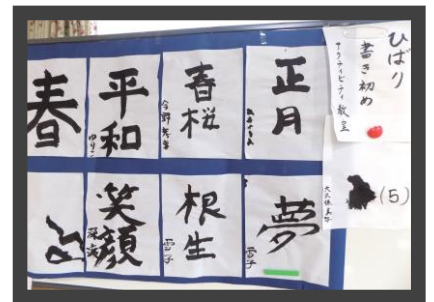 ひばり
書き初め
アクティビティ教室
(5)
正月
春桜
平和
春
夢
雪子
根生
雪子
笑顔